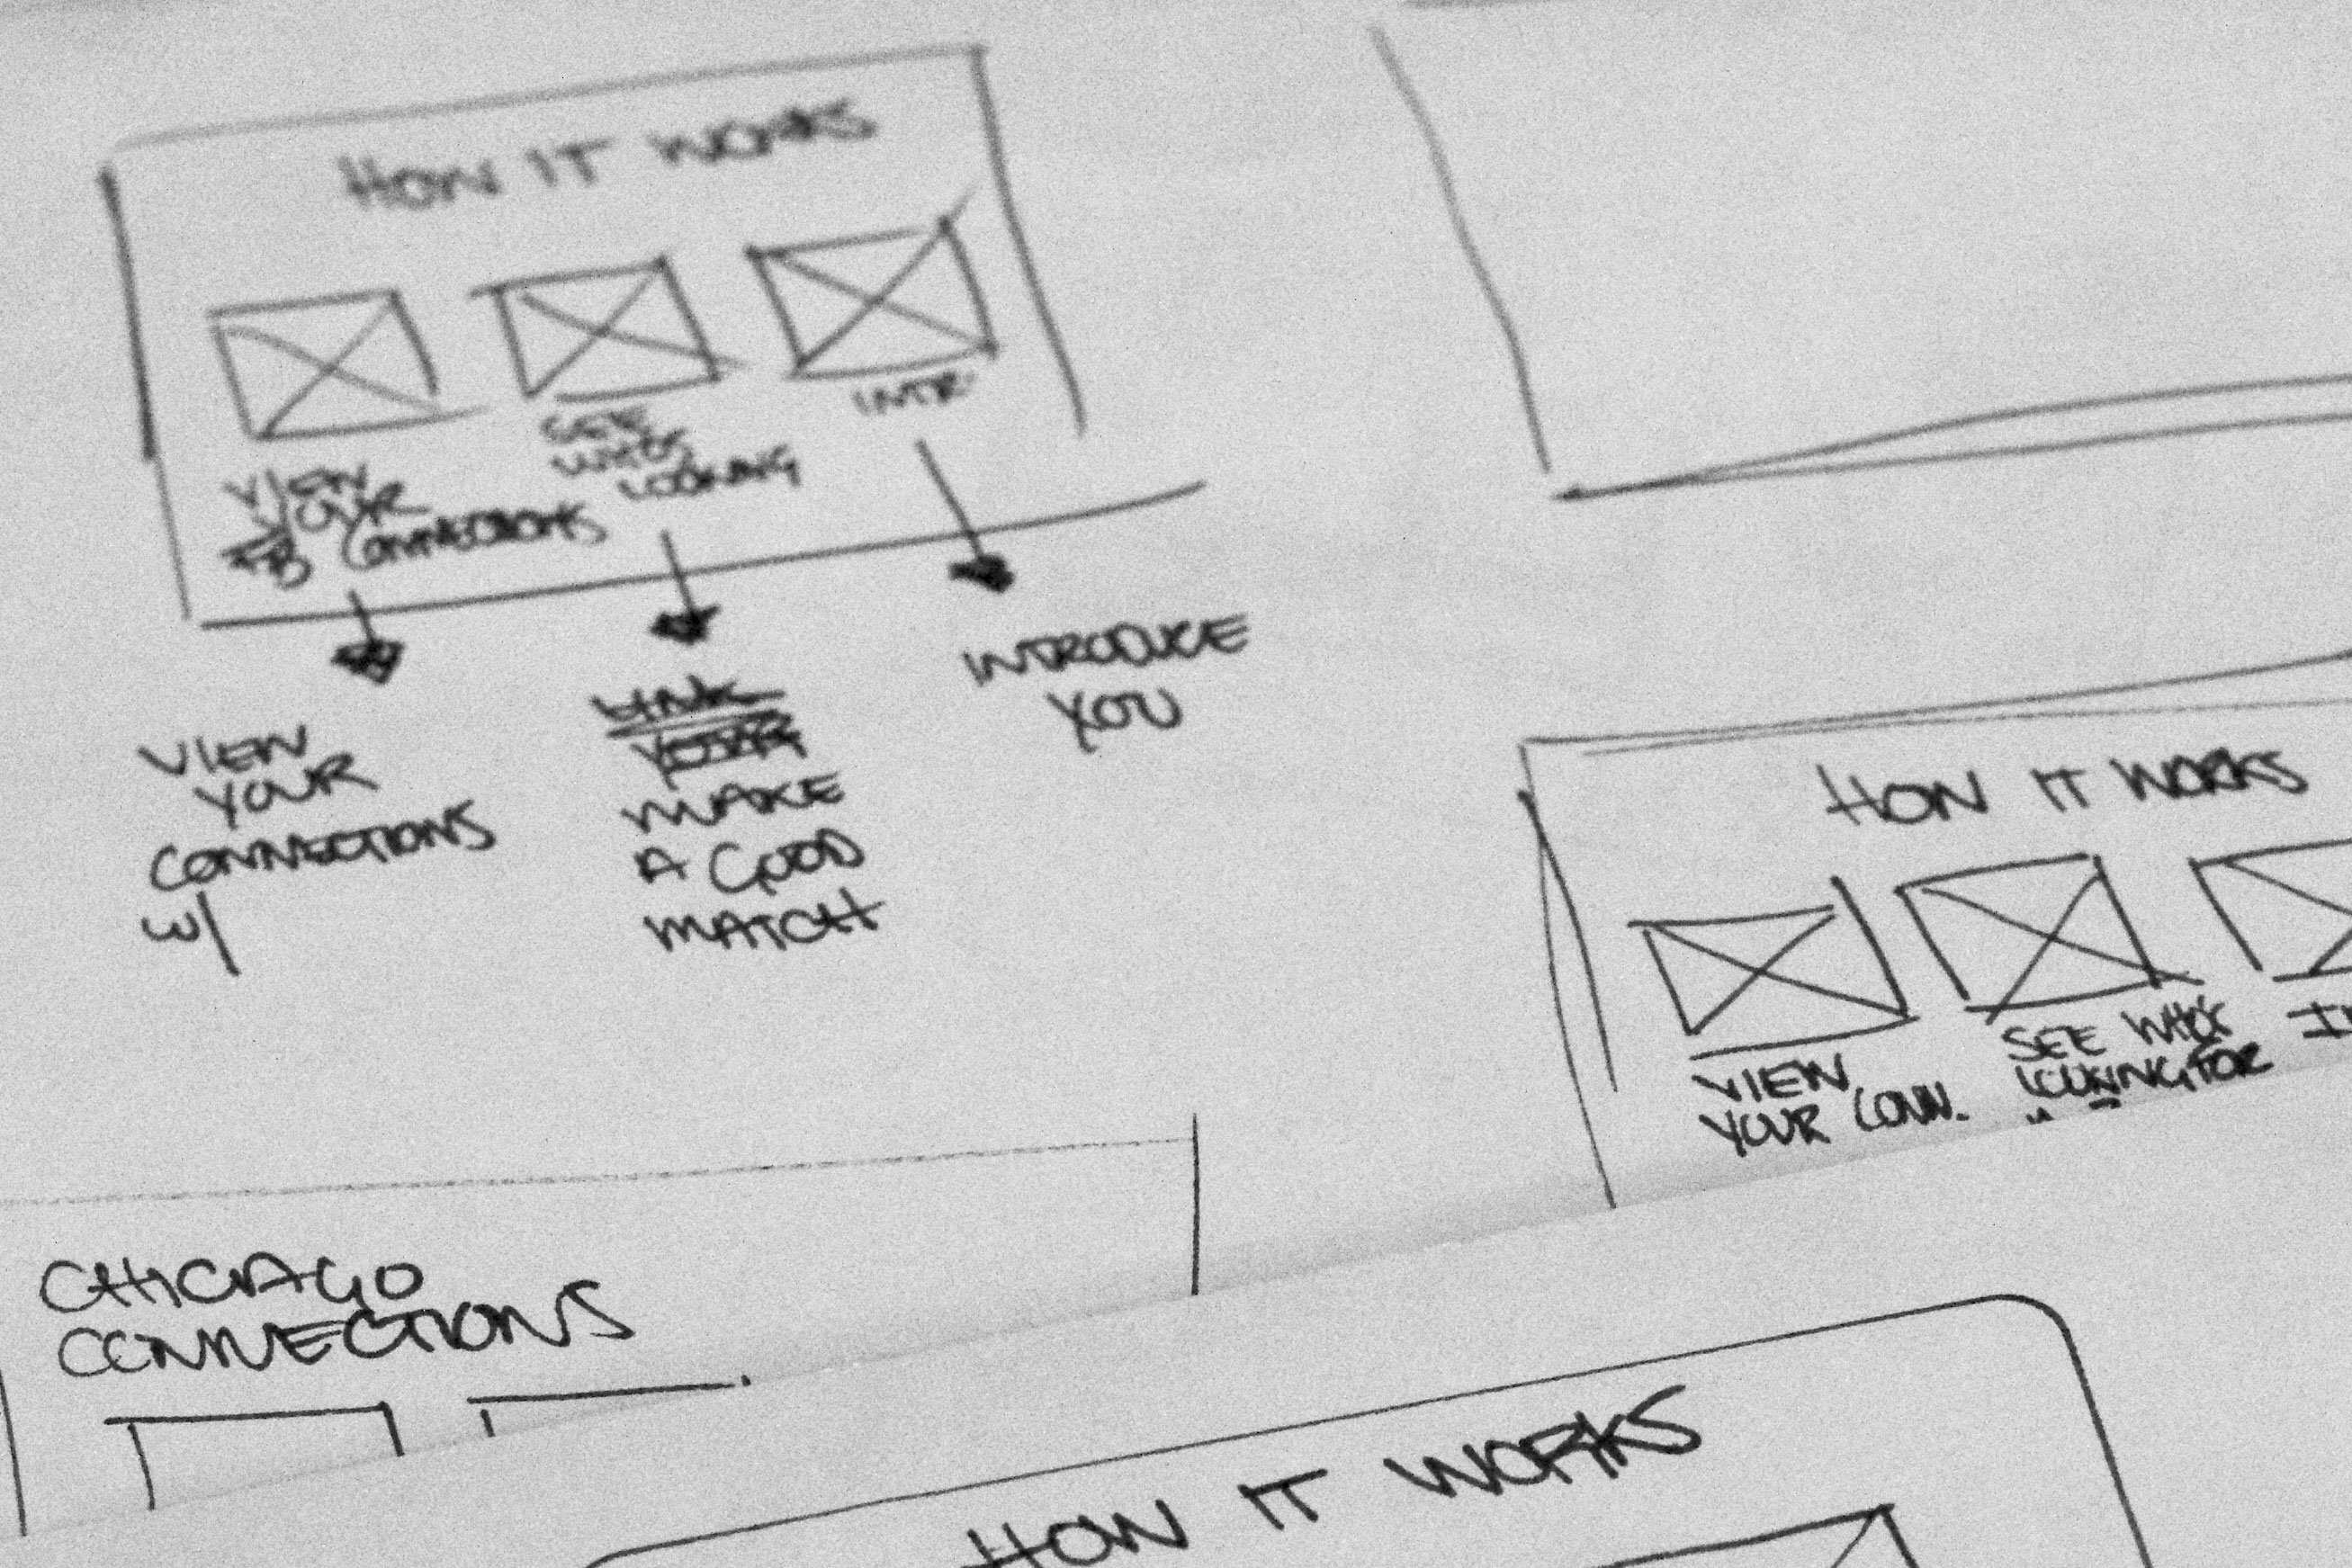 HOW IT WORKS
VIEW
YOUR
FB CONNECTIONS
SEE
WHOS
LOOKING
INTR
VIEW
YOUR
CONNECTIONS
W/
LINK
MAKE
A GOOD
MATCH
INTRODUCE
YOU
HOW IT WORKS
VIEW
YOUR CONN.
SEE WHOS
LOOKING FOR
CHICAGO
CONNECTIONS
HOW IT WORKS